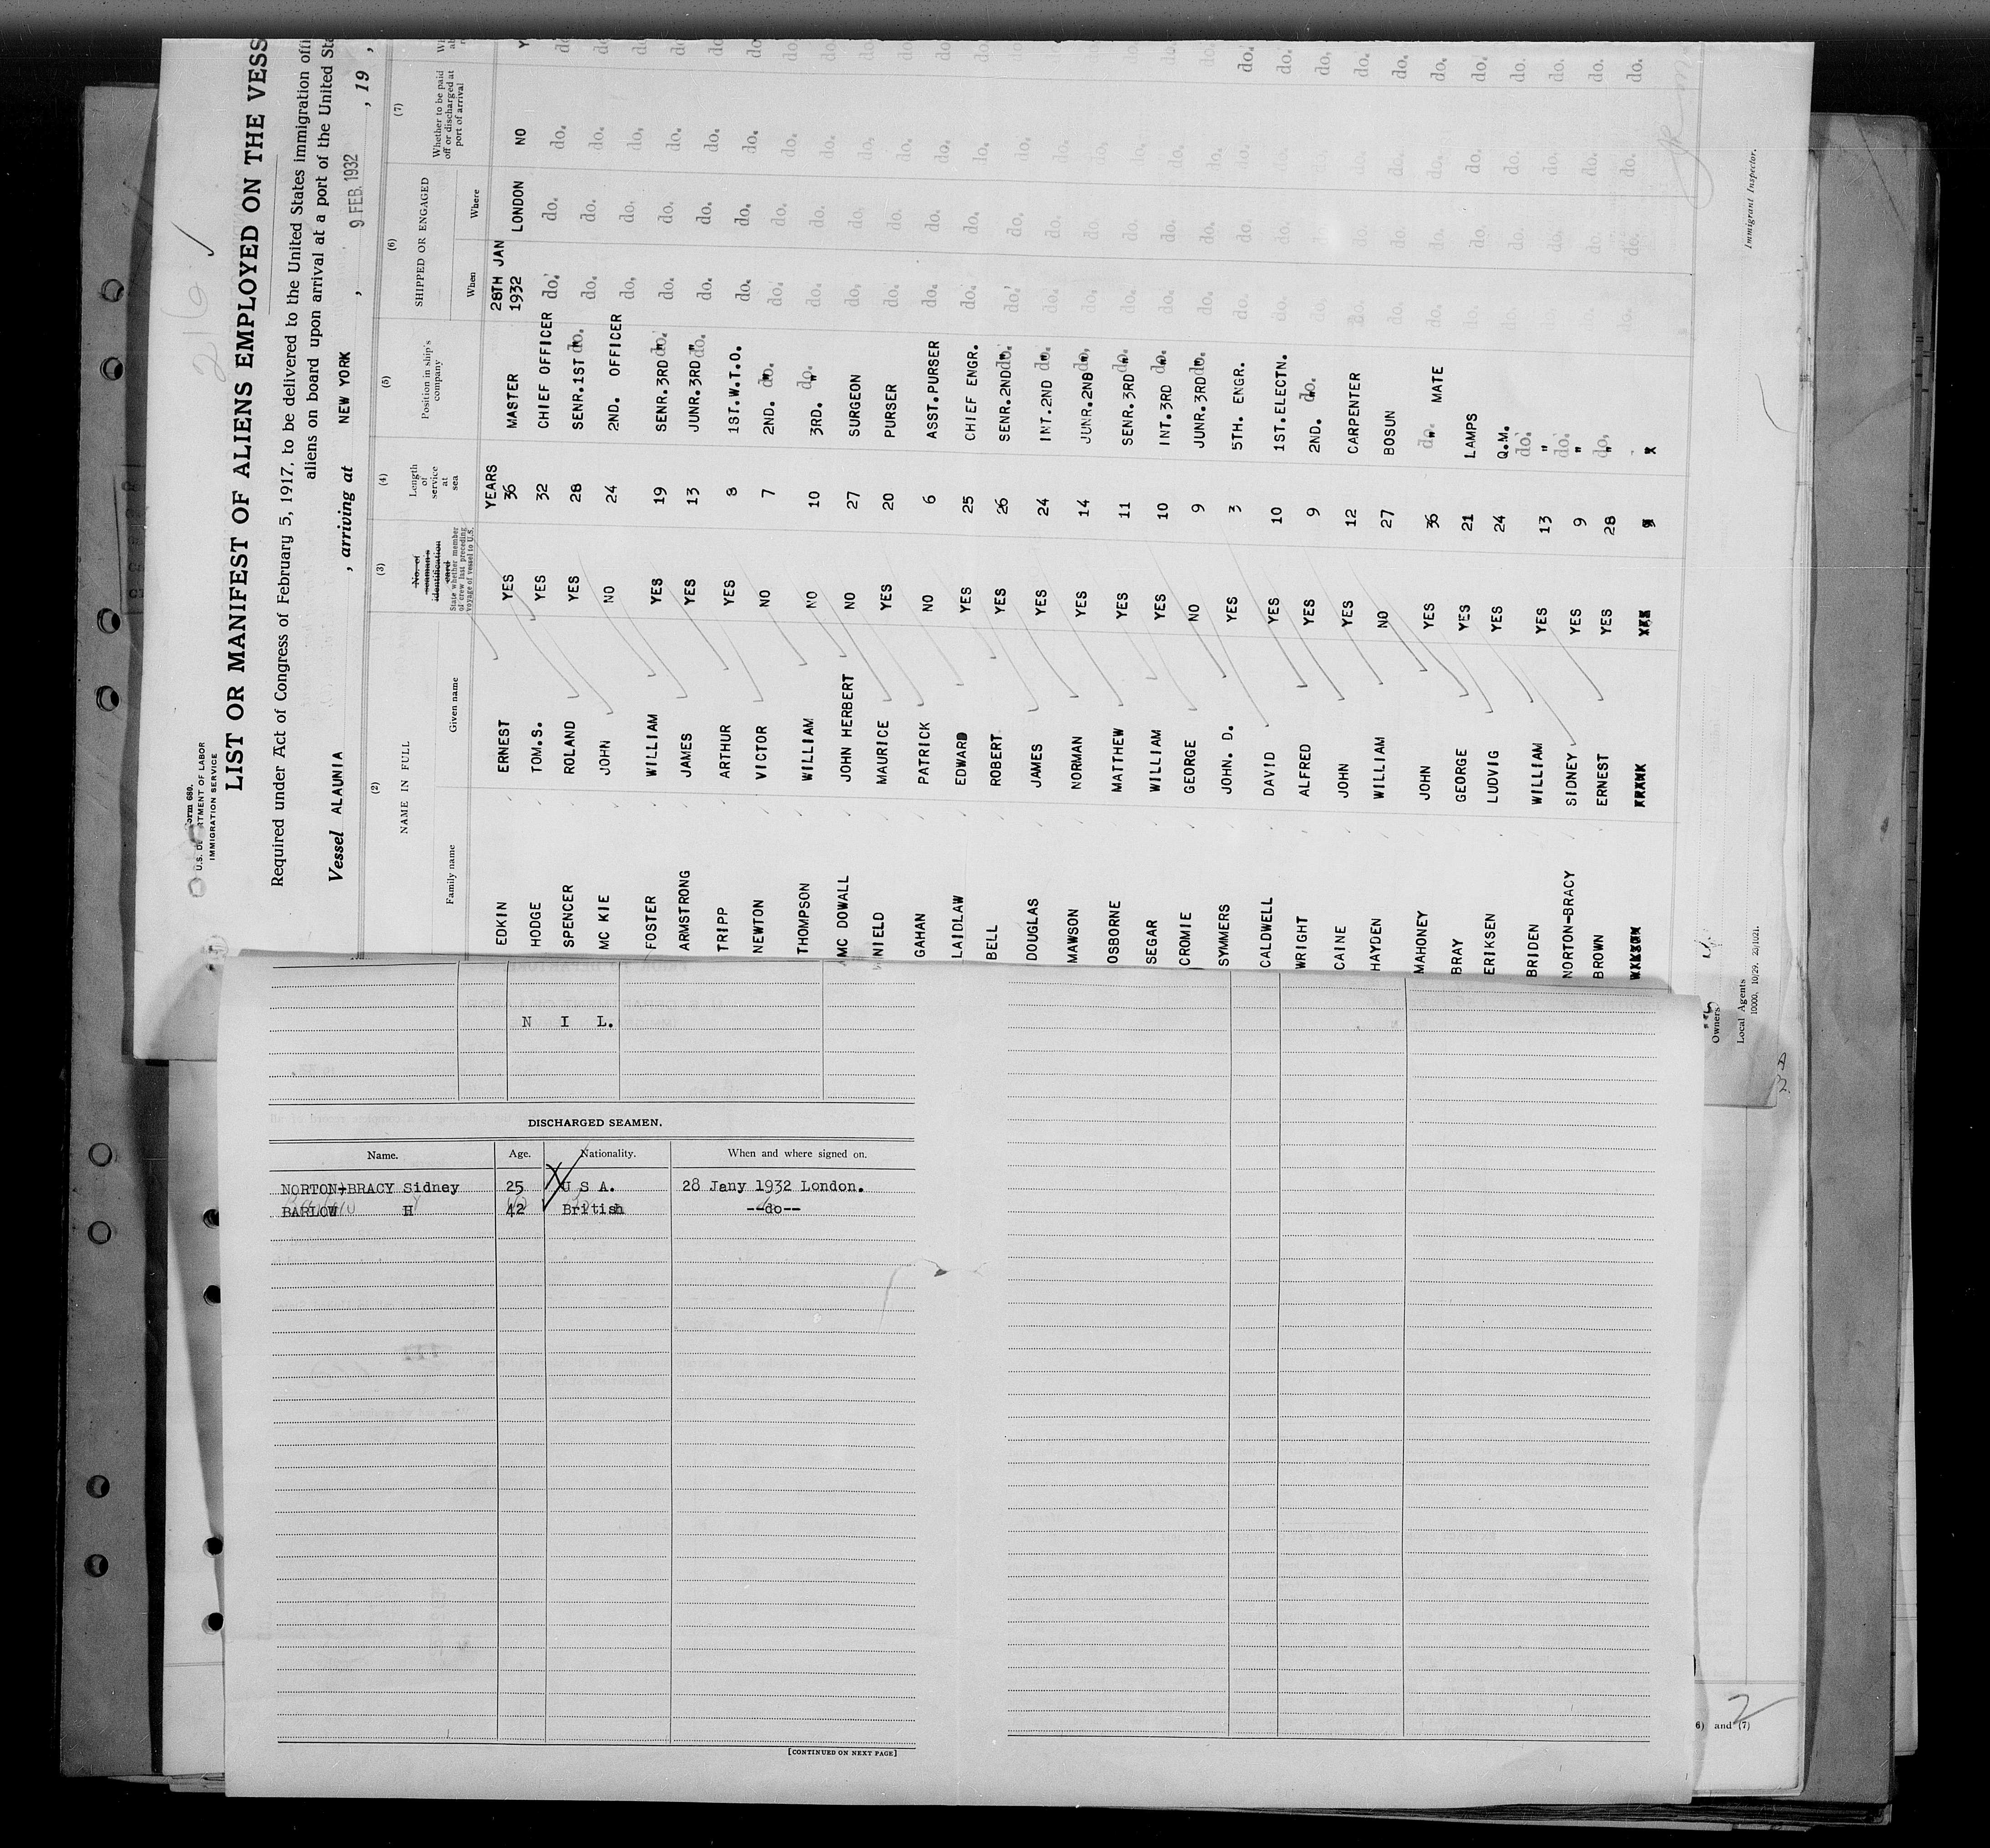 Form 680.
U.S. DE RTMENT OF LABOR
IMMIGRATION SERVICE
LIST OR MANIFEST OF ALIENS EMPLOYED ON THE VESS
Required under Act of Congress of February 5, 1917, to be delivered to the United States immigration offi
aliens on board upon arrival at a port of the United Sta
Vessel ALAUNIA , arriving at NEW YORK , 9 FEB. 1932 , 19 ,
(2) (3) (4) (5) (6) (7)
NAME IN FULL
Family name Given name
No. of seaman's identification card
State whether member of crew last preceding voyage of vessel to U.S.
Length of service at sea
Position in ship's company
SHIPPED OR ENGAGED
When Where
Whether to be paid off or discharged at port of arrival
YEARS 28TH JAN
EDKIN ERNEST YES 36 MASTER 1932 LONDON NO
HODGE TOM.S. YES 32 CHIEF OFFICER do. do. do.
SPENCER ROLAND YES 28 SENR.1ST do. do. do. do.
MC KIE JOHN NO 24 2ND. OFFICER do. do. do.
FOSTER WILLIAM YES 19 SENR.3RD do. do. do. do.
ARMSTRONG JAMES YES 13 JUNR.3RD do. do. do. do.
TRIPP ARTHUR YES 8 1ST.W.T.O. do. do. do.
NEWTON VICTOR NO 7 2ND. do. do. do. do.
THOMPSON WILLIAM NO 10 3RD. do. do. do. do.
MC DOWALL JOHN HERBERT NO 27 SURGEON do. do. do.
NIELD MAURICE YES 20 PURSER do. do. do.
GAHAN PATRICK NO 6 ASST.PURSER do. do. do.
LAIDLAW EDWARD YES 25 CHIEF ENGR. do. do. do.
BELL ROBERT YES 26 SENR.2ND do. do. do. do.
DOUGLAS JAMES YES 24 INT.2ND do. do. do. do.
MAWSON NORMAN YES 14 JUNR.2ND do. do. do. do.
OSBORNE MATTHEW YES 11 SENR.3RD do. do. do. do.
SEGAR WILLIAM YES 10 INT.3RD do. do. do. do.
CROMIE GEORGE NO 9 JUNR.3RD do. do. do. do.
SYMMERS JOHN. D. YES 3 5TH. ENGR. do. do. do.
CALDWELL DAVID YES 10 1ST.ELECTN. do. do.
WRIGHT ALFRED YES 9 2ND. do. do.
CAINE JOHN YES 12 CARPENTER do. do. do.
HAYDEN WILLIAM NO 27 BOSUN do. do. do.
MAHONEY JOHN YES 36 do. MATE do. do. do.
BRAY GEORGE YES 21 LAMPS do. do. do.
ERIKSEN LUDVIG YES 24 Q.M. do. do. do.
BRIDEN WILLIAM YES 13 do. do. do.
NORTON-BRACY SIDNEY YES 9 do. do. do. do.
BROWN ERNEST YES 28 do. do. do. do.
Immigrant Inspector.
Owners
Local Agents
10000, 10/29.
N I L.
DISCHARGED SEAMEN.
Name. Age. Nationality. When and where signed on.
NORTON-BRACY Sidney 25 U S A. 28 Jany 1932 London.
BARLOW H 42 British --do--
[CONTINUED ON NEXT PAGE]
6) and (7)
2